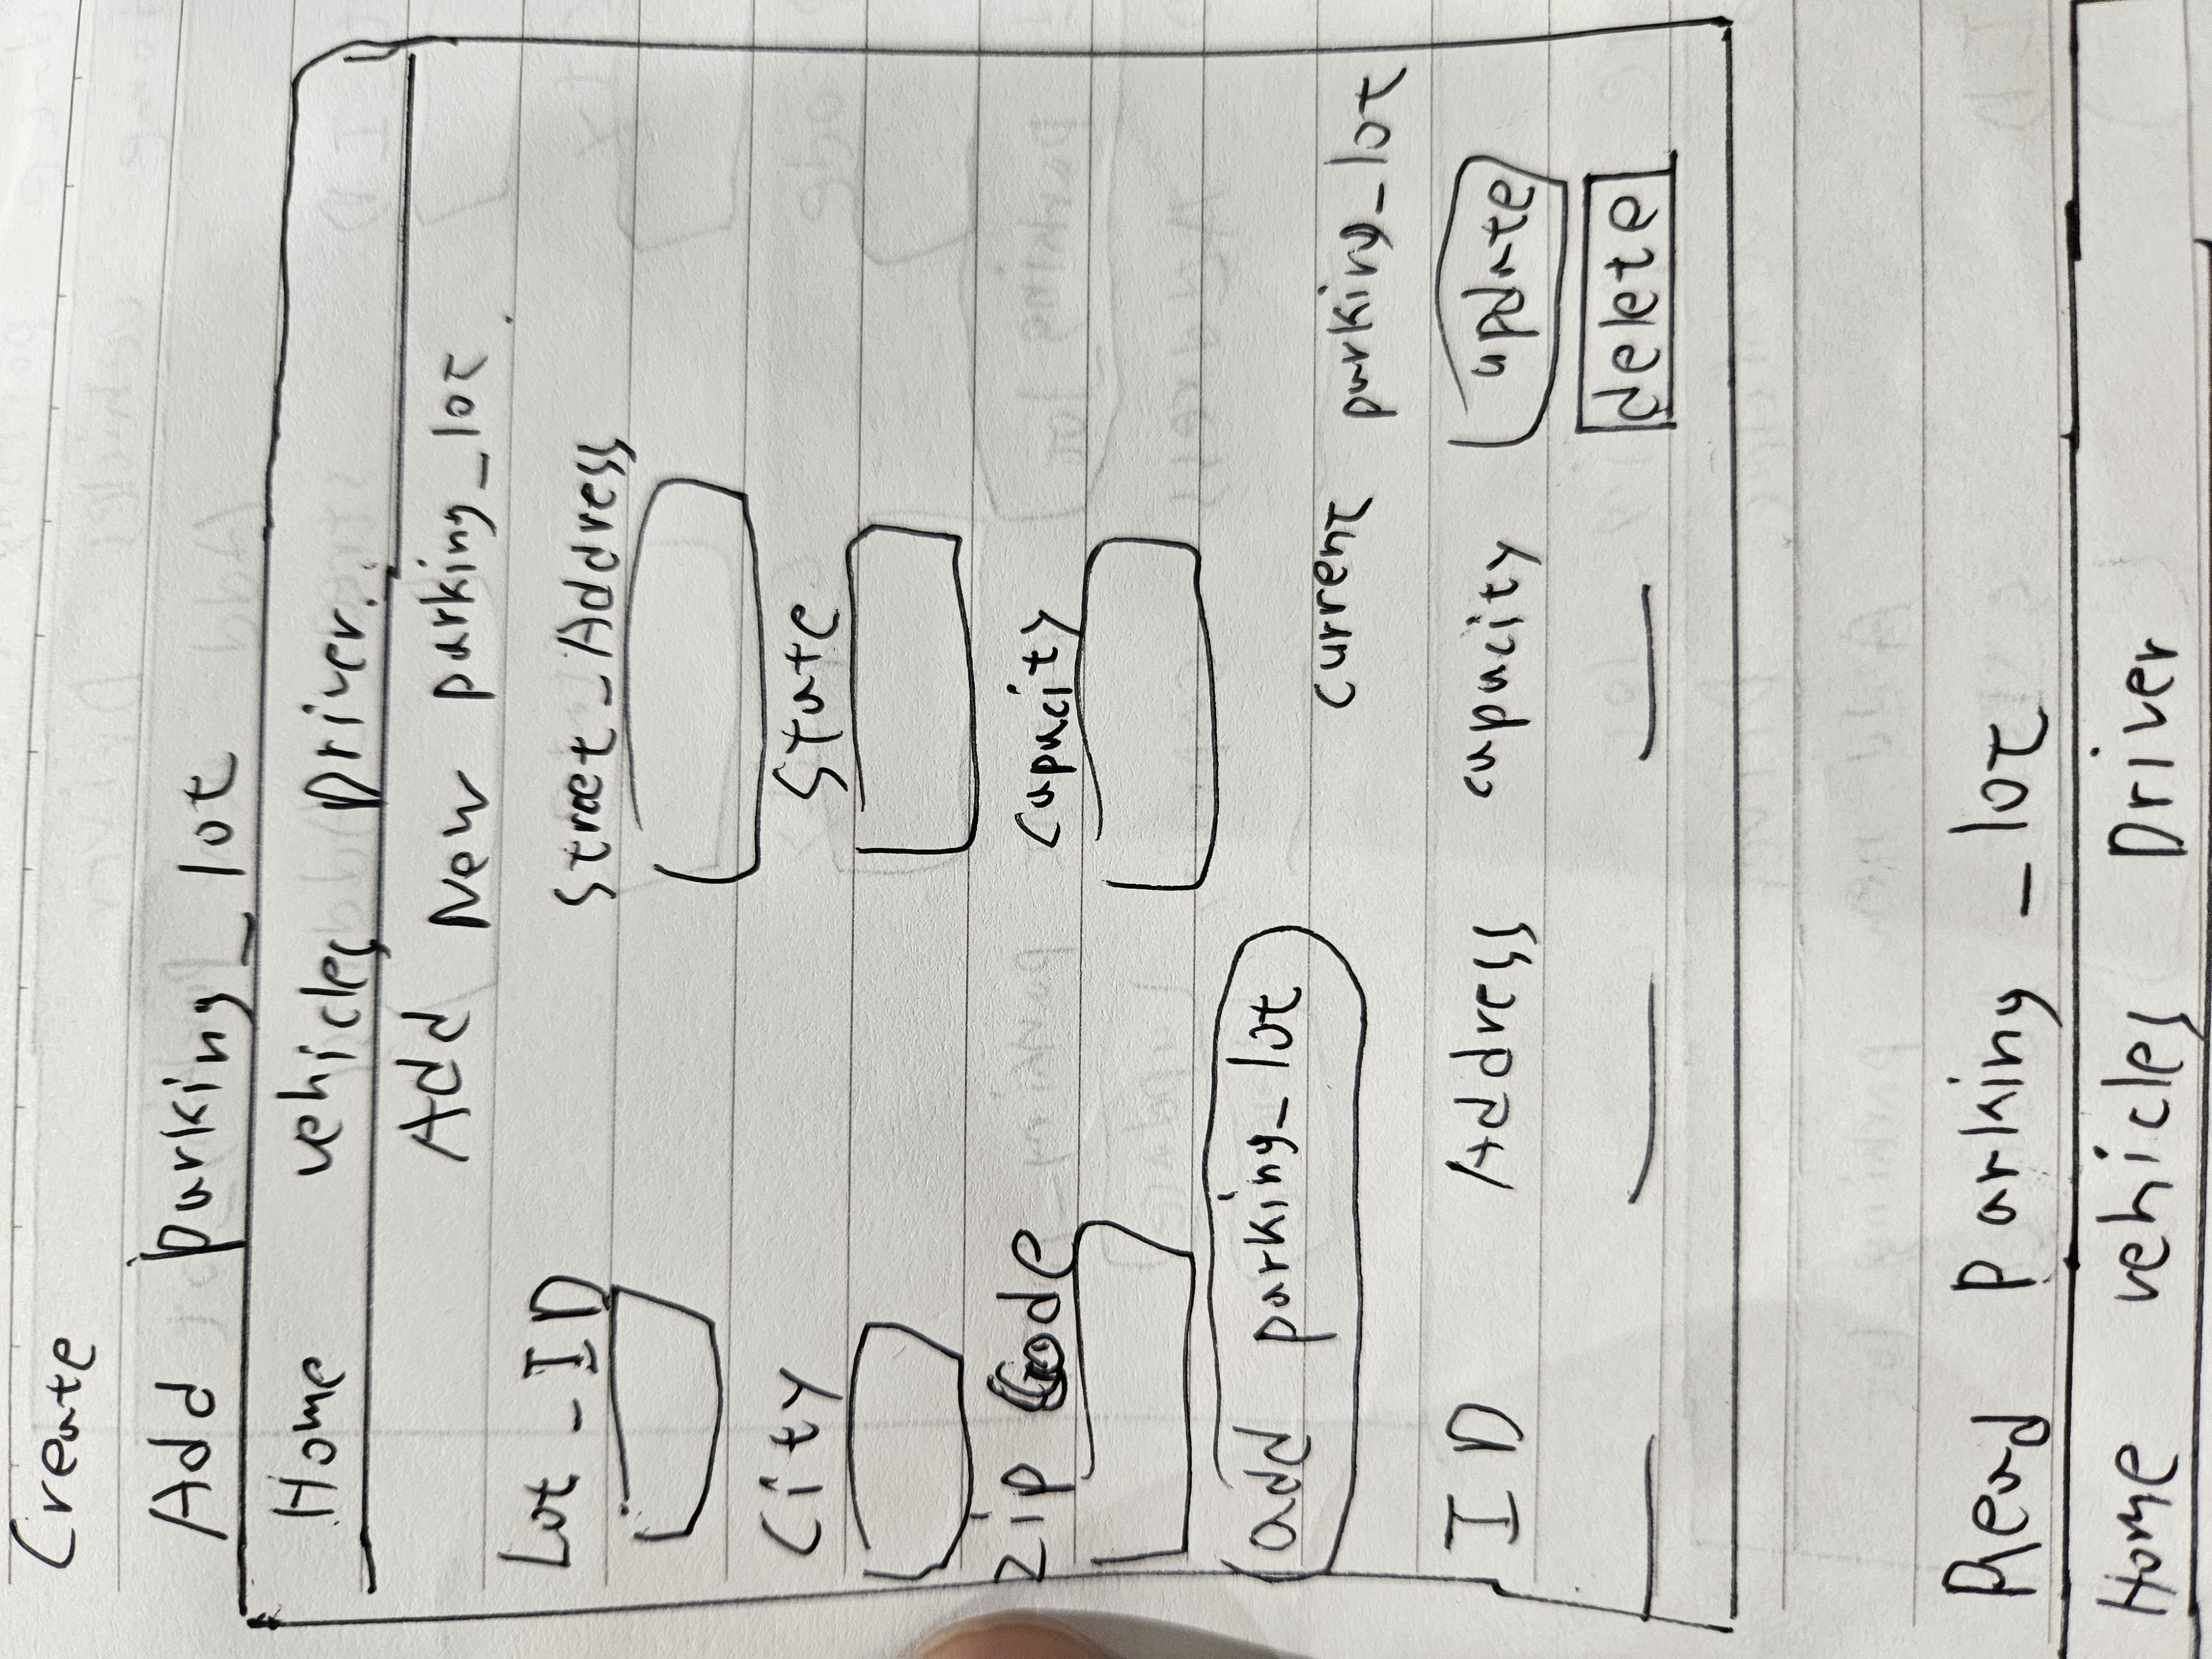 Create
Add parking_lot
Home vehicles Driver.
Add New parking_lot.
Lot_ID Street_Address
City State
Zip Code capacity
add parking_lot
current parking_lot
ID Address capacity update
delete
Read Parking_lot
Home vehicles Driver